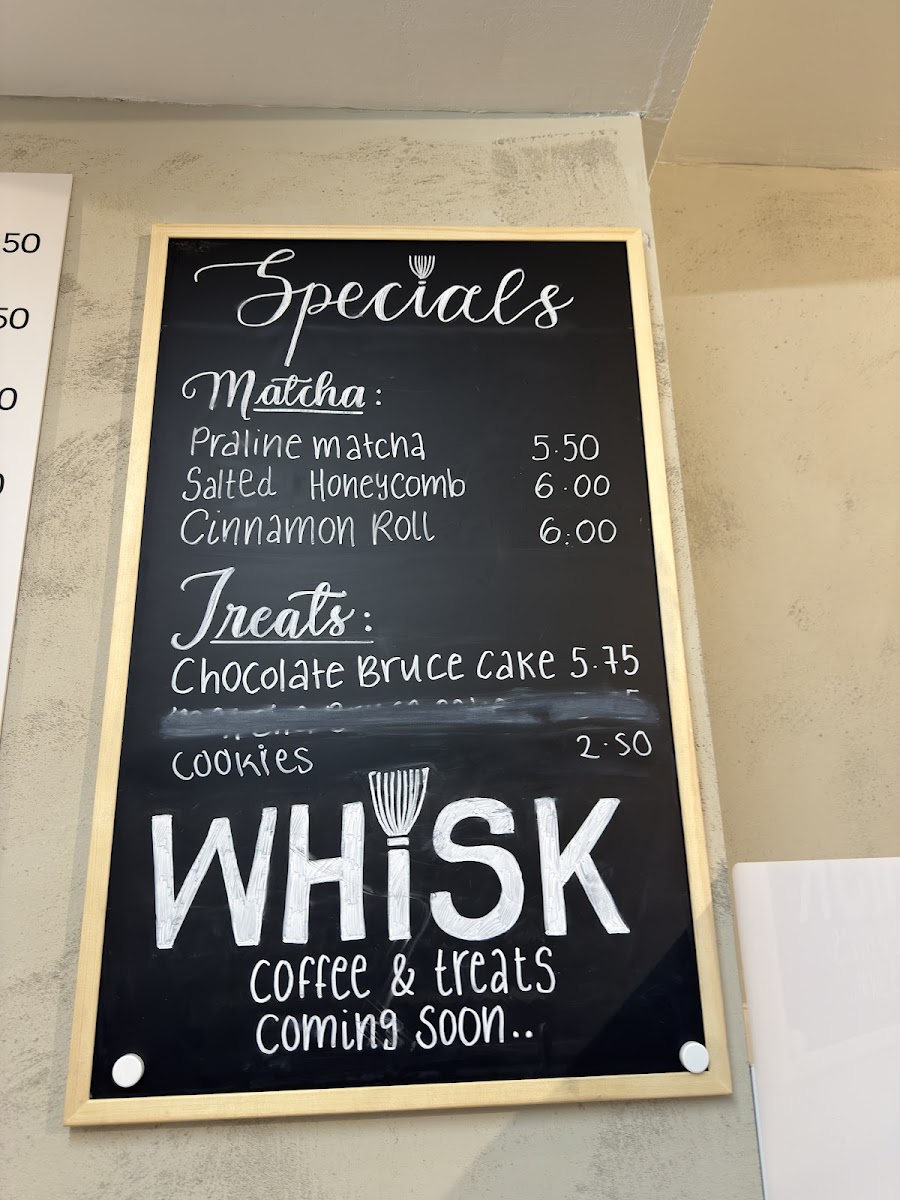 50
50
0
Specials
Matcha:
Praline matcha 5.50
Salted Honeycomb 6.00
Cinnamon Roll 6.00
Treats:
Chocolate Bruce cake 5.75
cookies 2.50
WHISK
coffee & treats
coming soon..